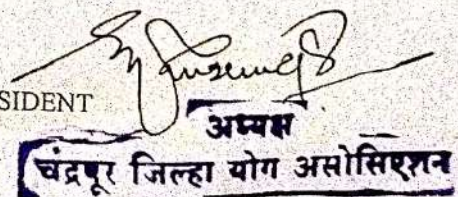 SIDENT
अध्यक्ष
चंद्रपूर जिल्हा योग असोसिएशन